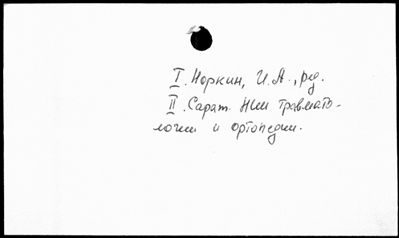 I. Норкин, И.А., ред.
II. Сарат. НИИ травмато-
логии и ортопедии.